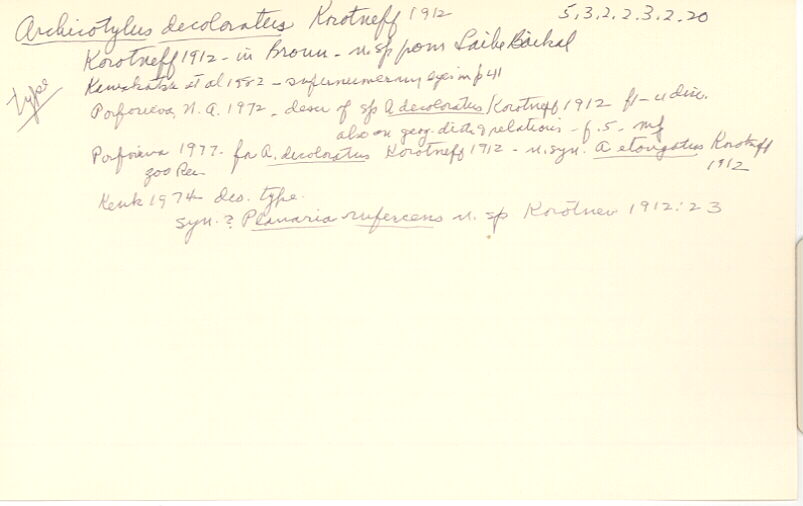 Archicotylus decoloratus Korotneff 1912 5.3.2.2.3.2.20
Korotneff 1912 - in Bronn - n. sp from Laike Baikal
type
et al 1982 - supernumerary eyes in p 41
Porfirieva, N. A. 1972 - descr of sp A. decoloratus Korotneff 1912 ft - u disc.
also on geog. distr & relations - f. 5 - mf
Porfirieva 1977 - for A. decoloratus Korotneff 1912 - n. syn. A elongatus Korotneff
1912
Zoo Rec
Kenk 1974 - des. type.
syn. ? Planaria rufescens n. sp Korotnev 1912: 23